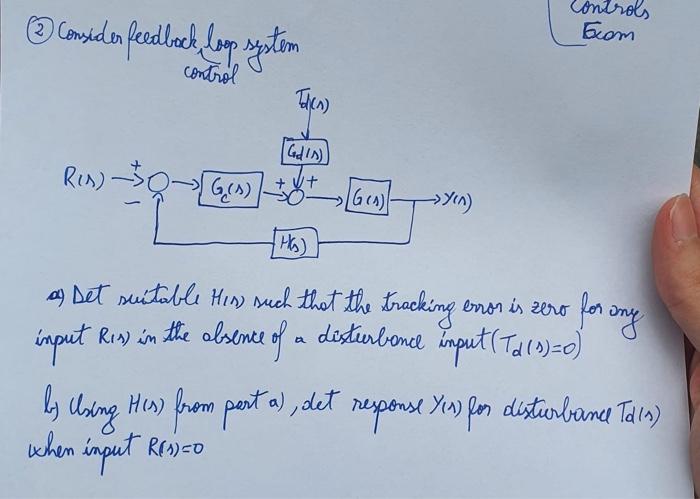 Controls
Exam
② Consider feedback loop system
control
Td(s)
Gd(s)
R(s) + Gc(s) + + G(s) Y(s)
−
H(s)
a) Det suitable H(s) such that the tracking error is zero for any
input R(s) in the absence of a disturbance input (Td(s)=0)
b) Using H(s) from part a), det response Y(s) for disturbance Td(s)
when input R(s)=0